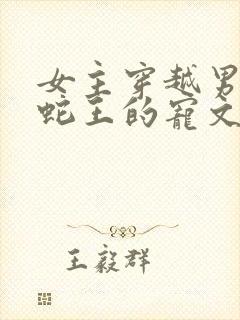 女主穿越男
蛇王的寵文
王毅群